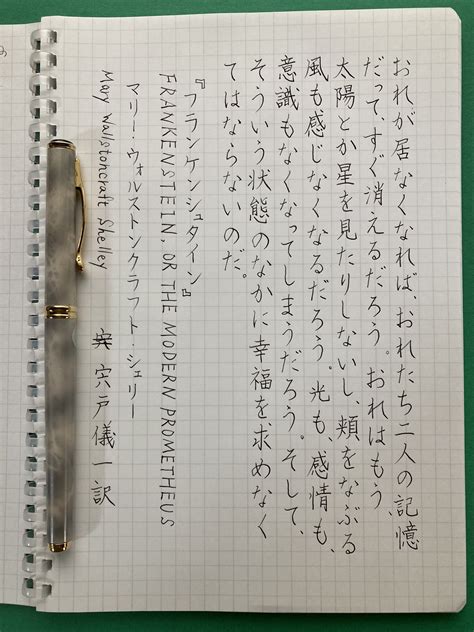 おれが居なくなれば、おれたち二人の記憶
だって、すぐ消えるだろう。おれはもう、
太陽とか星を見たりしないし、頬をなぶる
風も感じなくなるだろう。光も、感情も、
意識もなくなってしまうだろう。そして、
そういう状態のなかに幸福を求めなく
てはならないのだ。
『フランケンシュタイン』
FRANKENSTEIN, OR THE MODERN PROMETHEUS
マリー・ウォルストンクラフト・シェリー
Mary Wallstoncraft Shelley
宍戸儀一訳